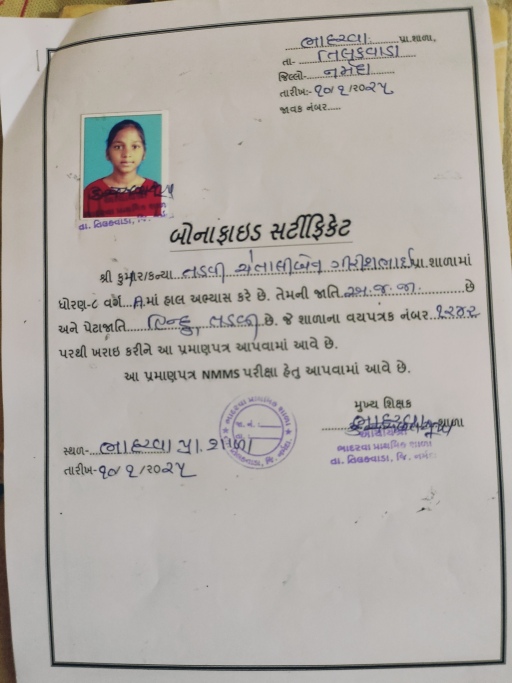 ભાદરવા પ્રા.શાળા,
તા- તિલકવાડા
જિલ્લો- નર્મદા
તારીખ:- ૧૦/૧/૨૦૨૫
જાવક નંબર.....
તા. તિલકવાડા, જિ.
બોનાફાઇડ સર્ટીફિકેટ
શ્રી કુમાર/કન્યા તડવી ચેતાલીબેન ગીરીશભાઈ પ્રા.શાળામાં
ધોરણ-૮ વર્ગ A માં હાલ અભ્યાસ કરે છે. તેમની જાતિ અ.જ.જા. છે
અને પેટાજાતિ હિન્દુ તડવી છે. જે શાળાના વયપત્રક નંબર ૧૨૪૨
પરથી ખરાઇ કરીને આ પ્રમાણપત્ર આપવામાં આવે છે.
આ પ્રમાણપત્ર NMMS પરીક્ષા હેતુ આપવામાં આવે છે.
મુખ્ય શિક્ષક
ભાદરવા શાળા
આચાર્ય
ભાદરવા પ્રાથમિક શાળા
તા. તિલકવાડા, જિ. નર્મદા
સ્થળ- ભાદરવા પ્રા. શાળા
તારીખ- ૧૦/૧/૨૦૨૫